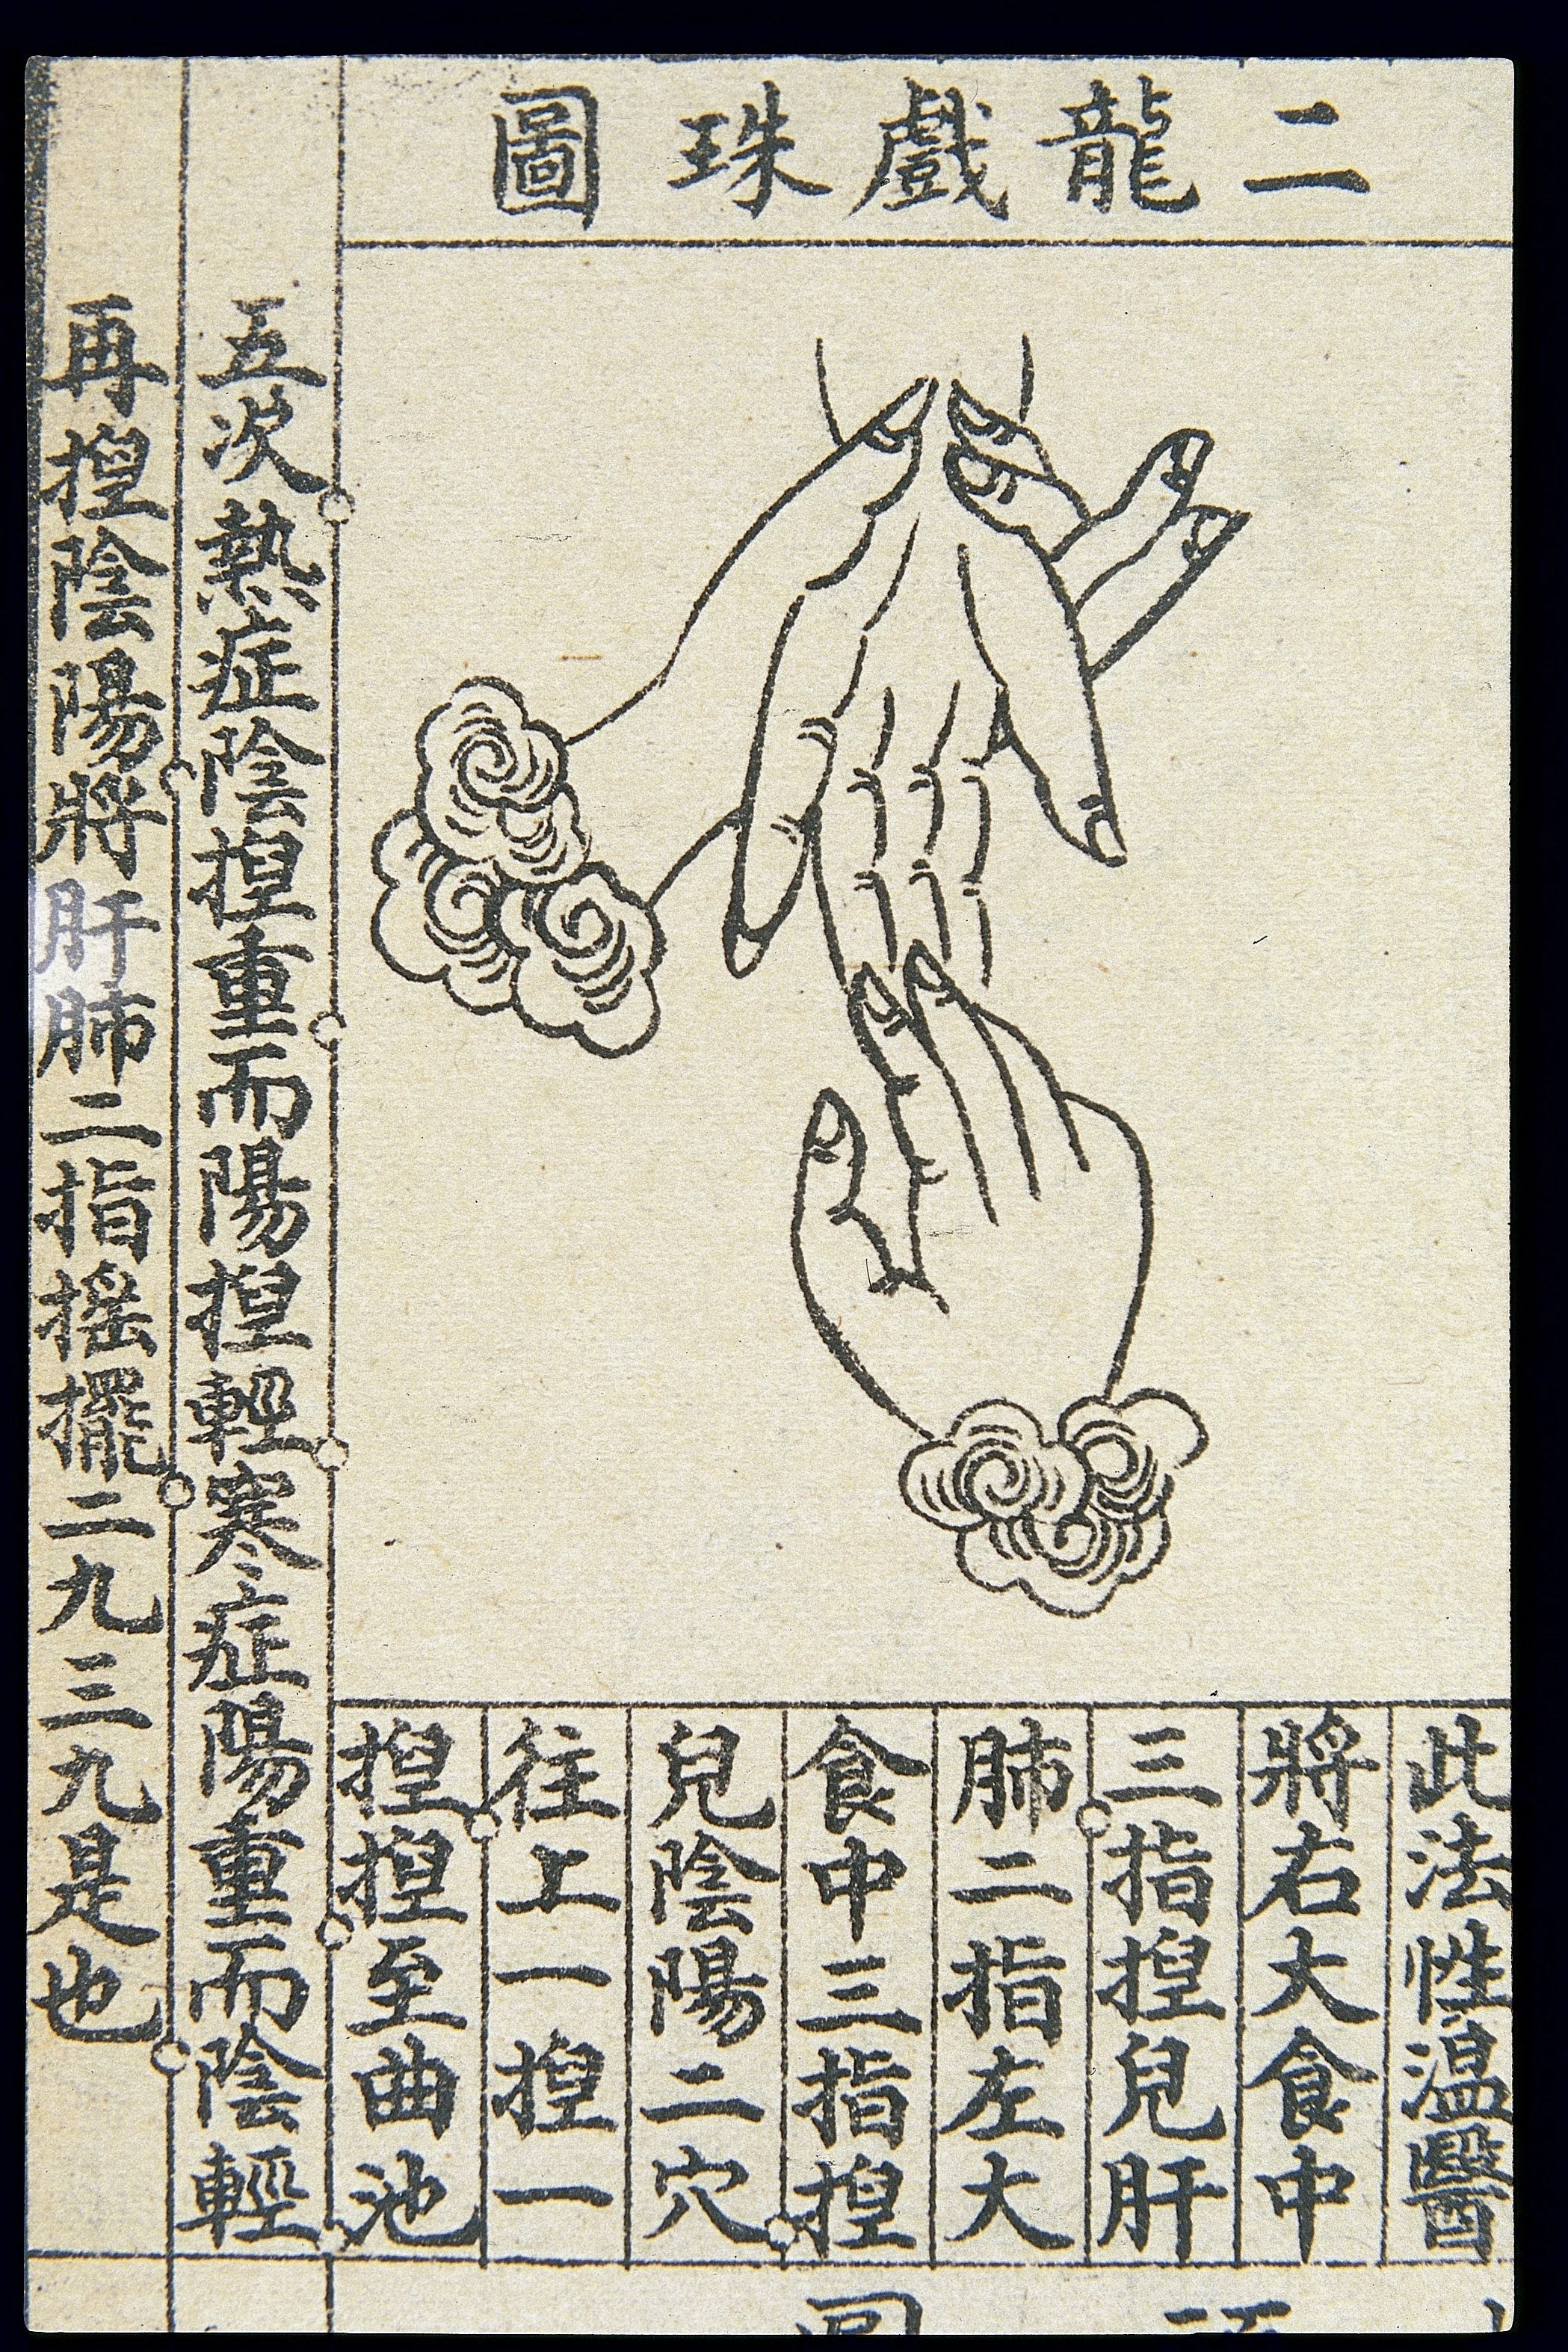 二龍戲珠圖
此法性温醫
將右大食中
三指揑兒肝
肺二指左大
食中三指揑
兒陰陽二穴
往上一揑一
揑揑至曲池
五次熱症陰揑重而陽揑輕寒症陽重而陰輕
再揑陰陽將肝肺二指摇擺二九三九是也